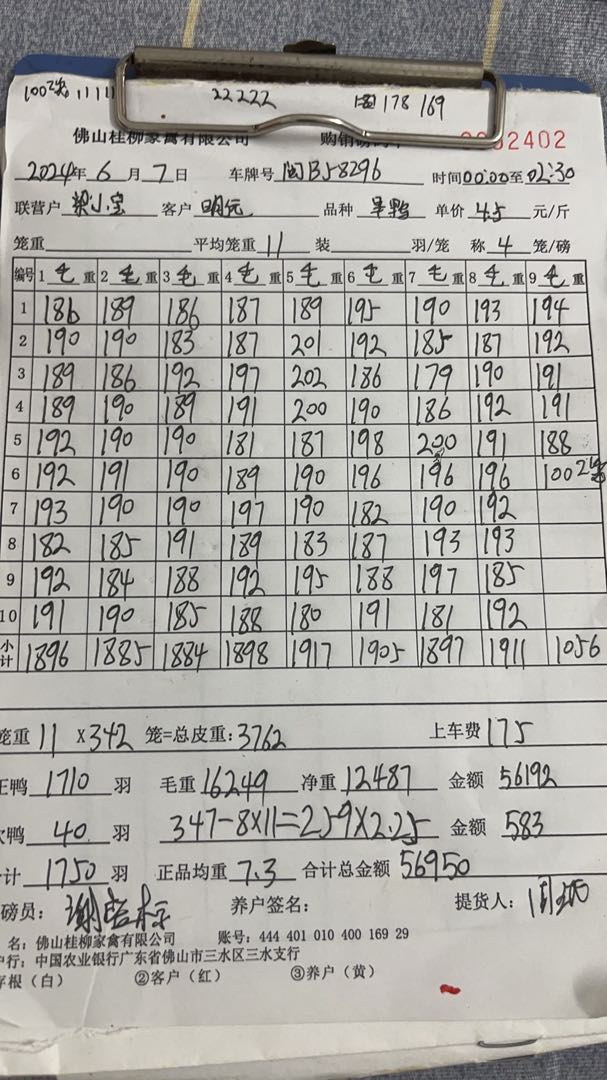 100 2笼 11111 22222 178 169
佛山桂柳家禽有限公司 购销磅码单 0002402
2024年6月7日 车牌号 闽B58296 时间00:00至02:30
联营户 梁小宝 客户 明记 品种 单价 4.5 元/斤
笼重 平均笼重 11 装 羽/笼 称 4 笼/磅
编号 1 毛 重 2 毛 重 3 毛 重 4 毛 重 5 毛 重 6 毛 重 7 毛 重 8 毛 重 9 毛 重
1 186 189 186 187 189 195 190 193 194
2 190 190 183 187 201 192 185 187 192
3 189 186 192 197 202 186 179 190 191
4 189 190 189 191 200 190 186 192 191
5 192 190 190 181 187 198 200 191 188
6 192 191 190 189 190 196 196 196 100 2笼
7 193 190 190 197 190 182 190 192
8 182 185 191 189 183 187 193 193
9 192 184 188 192 195 188 197 185
10 191 190 185 188 180 191 181 192
小计 1896 1885 1884 1898 1917 1905 1897 1911 1056
笼重 11 X342 笼=总皮重:3762 上车费 175
正鸭 1710 羽 毛重 16249 净重 12487 金额 56192
次鸭 40 羽 347-8X11=259X2.25 金额 583
合计 1750 羽 正品均重 7.3 合计总金额 56950
磅员: 养户签名: 提货人:
名:佛山桂柳家禽有限公司 账号:444 401 010 400 169 29
户行:中国农业银行广东省佛山市三水区三水支行
存根(白) ②客户(红) ③养户(黄)